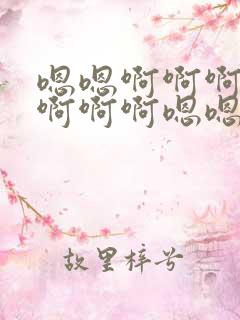 嗯嗯啊啊啊
啊啊啊嗯嗯
故里梓兮